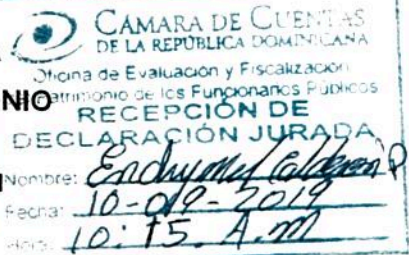 CÁMARA DE CUENTAS
DE LA REPÚBLICA DOMINICANA
Oficina de Evaluación y Fiscalización
NIO
Patrimonio de los Funcionarios Públicos
RECEPCIÓN DE
DECLARACIÓN JURADA
Nombre:
Fecha: 10-09-2019
Hora: 10:15 A.M